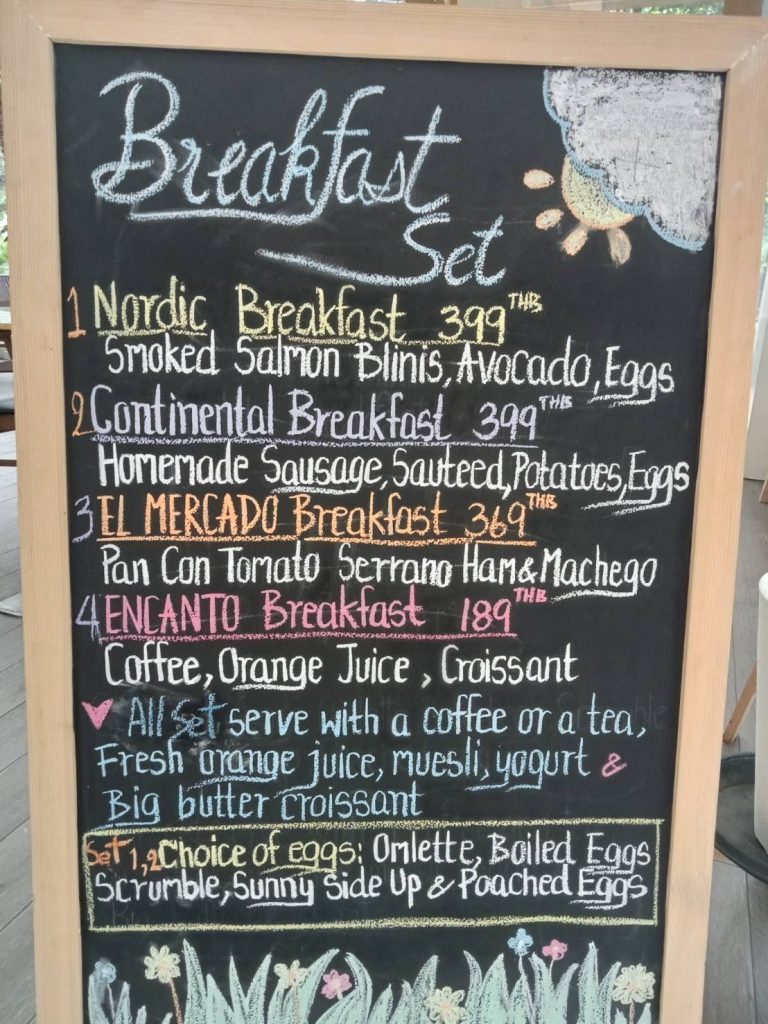 Breakfast
Set
1 Nordic Breakfast 399 THB
Smoked Salmon Blinis, Avocado, Eggs
2 Continental Breakfast 399 THB
Homemade Sausage, Sauteed, Potatoes, Eggs
3 EL MERCADO Breakfast 369 THB
Pan Con Tomato Serrano Ham & Machego
4 ENCANTO Breakfast 189 THB
Coffee, Orange Juice, Croissant
All Set serve with a coffee or a tea,
Fresh orange juice, muesli, yogurt &
Big butter croissant
Set 1,2 Choice of eggs: Omlette, Boiled Eggs
Scrumble, Sunny Side Up & Poached Eggs